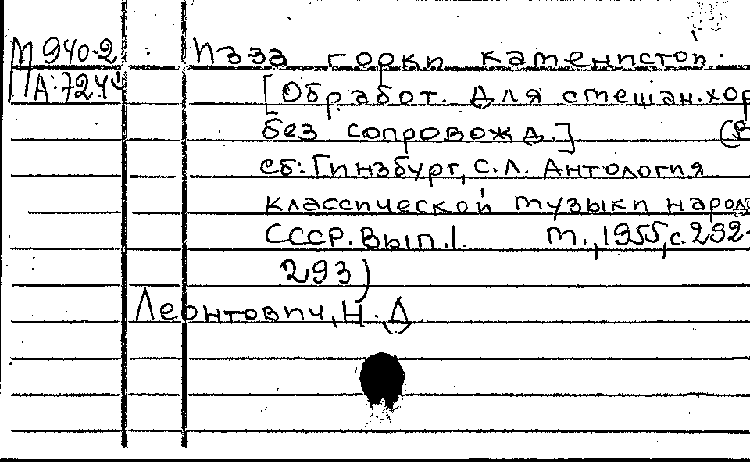 М 940-2 Из-за горки каменистой.
А:724 [Обработ. для смешан.хор
без сопровожд.] (В
сб: Гинзбург, С.Л. Антология
классической музыки народ
СССР. Вып.1. М.,1955,с.292-
293)
Леонтович, Н.Д